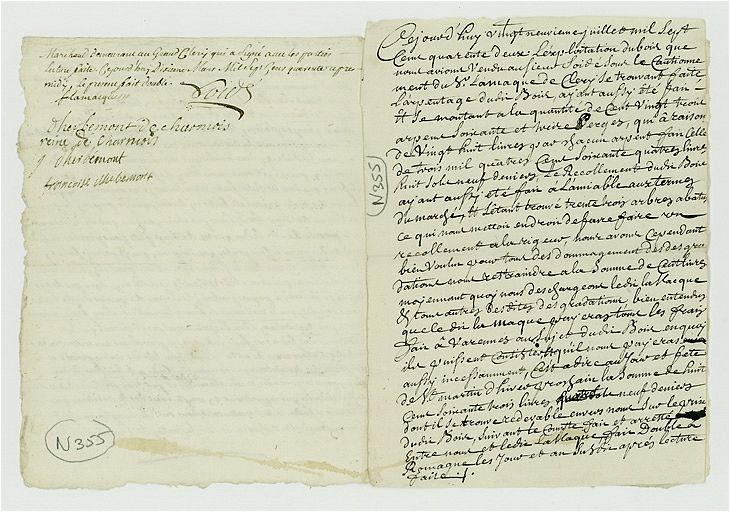 Marchand demeurant au Grand Clery qui a signé avec les parties
lecture faite Cejourdhuy dixieme Mars Mil Sept Cens quarente
midy, le present fait double
Lamacq
Dherbemont de charmois
reine de Charmois
J Dherbemont
francoise
N355
N355
Cejourd'huy vingt neuvieme juillet mil Sept
Cent quarente deux L'exploitation du bois que
nous avions Vendu au sieur Soidé sous le Cautionne
ment du Sr Lamacque de Clery se trouvant faite
L'arpentage dudit Bois, ayant aussy été fait
Et se montant a la quantité de Cent Vingt trois
arpent soixante et treize Verges, qui a raison
de Vingt huit livres par chacun arpent fait Celle
de trois mil quatres Cent soixante quatres livres
huit sols neuf deniers, Le Recollement dudit Bois
ayant aussy été fait a Lamiable aux termes
du marché, Et s'étant trouvé trente trois arbres abatus
ce qui nous mettoit en droit de faire faire un
recollement a la rigueur, nous avons Cependant
bien Voulu pour tous des dommages des degra
dations nous restraindre a la Somme de Cent livres
moyennant quoy nous deschargeons ledit la Macque
de tous autres desdites degradations, bien entendus
que ledit la Maque payeras tous les frais
fait a Varennes au Sujet dudit Bois en quoy
ils puissent Consister qu'il nous payeras
aussy incessamment, C'est a dire au Jour et fete
de St martin d'hiver prochain la Somme de huit
Cent soixante trois livres neuf deniers
dont il se trouve redevable envers nous Sur le prix
dudit Bois, suivant le Compte fait et arretté
Entre nous et ledit la Maque fait Double a
Romagne les Jour et an Susdit aprés lecture
faite